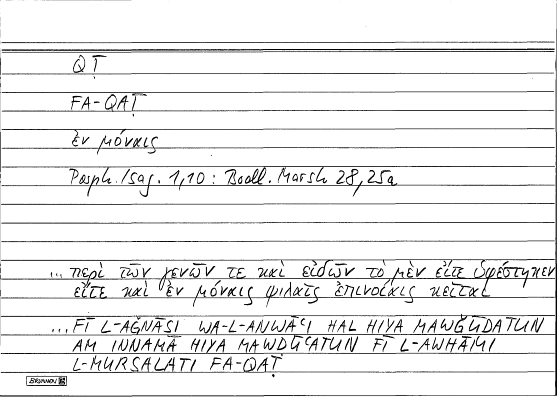 QṬ
FA-QAṬ
ἐν μόναις
Porph. Isag. 1,10 : Bodl. Marsh 28,25a
... περὶ τῶν γενῶν τε καὶ εἰδῶν τὸ μὲν εἴτε ὑφέστηκεν
εἴτε καὶ ἐν μόναις ψιλαῖς ἐπινοίαις κεῖται
... FĪ L-AǦNĀSI WA-L-ANWĀʿI HAL HIYA MAWǦŪDATUN
AM INNAMĀ HIYA MAWḌŪʿATUN FĪ L-AWHĀMI
L-MURSALATI FA-QAṬ
BRUNNEN